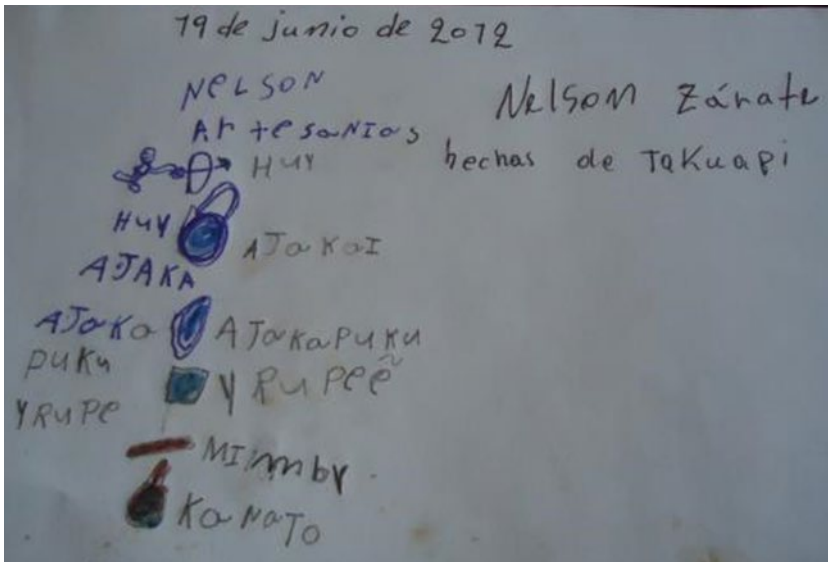 19 de junio de 2012
NeLSON
Nelson Zárate
Artesanias
hechas de Takuapi
HUY
HUY
AJaKaI
AJAKA
AJaKa
AJaKaPUKU
PUKu
YRuPeẽ
YRuPe
MImmby
KaNaTo